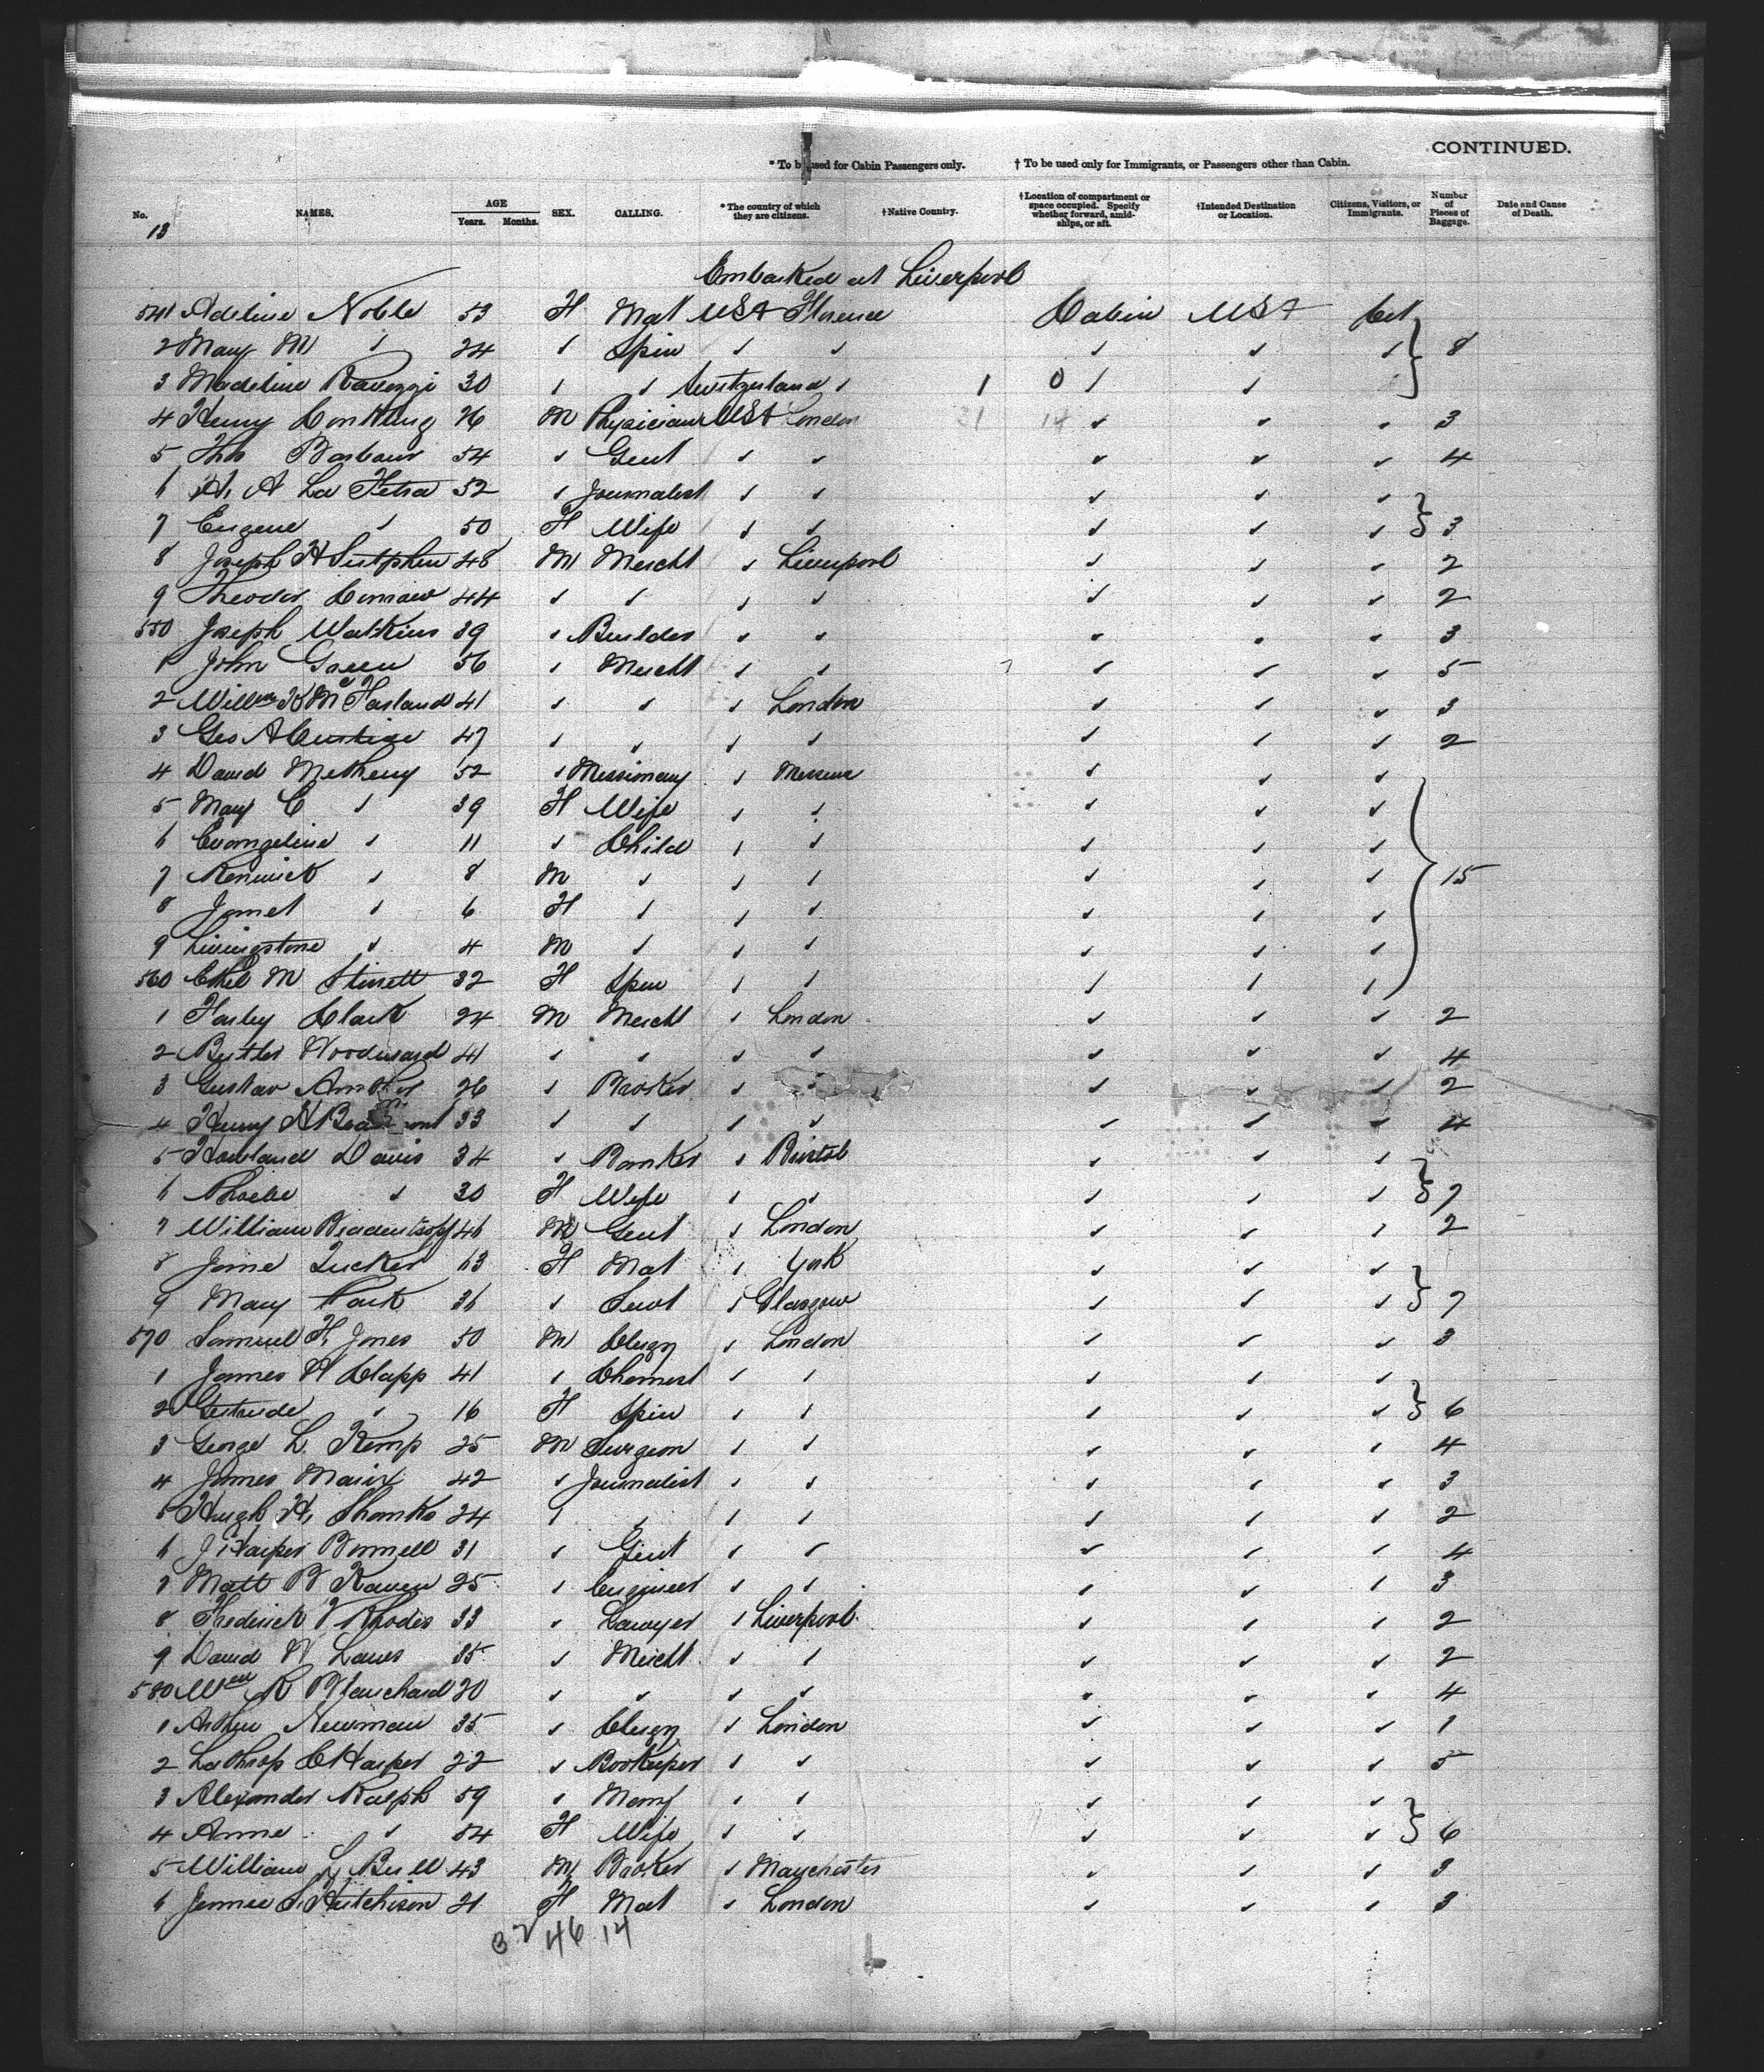 CONTINUED.
* To be used for Cabin Passengers only. † To be used only for Immigrants, or Passengers other than Cabin.
No. NAMES. AGE Years. Months. SEX. CALLING. * The country of which they are citizens. † Native Country. † Location of compartment or space occupied. Specify whether forward, amidships, or aft. † Intended Destination or Location. Citizens, Visitors, or Immigrants. Number of Pieces of Baggage. Date and Cause of Death.
13
Embarked at Liverpool
541 Adeline Noble 53 F Mat USA Florence Cabin USA Cit
2 Mary M ✓ 24 ✓ Spin ✓ ✓ ✓ ✓ ✓ } 8
3 Madeline 30 ✓ ✓ Switzerland ✓ 1 0 ✓ ✓
4 Henry Conkling 26 M Physician USA London 31 14 ✓ ✓ ✓ 3
5 Thos Barbour 54 ✓ Gent ✓ ✓ ✓ ✓ ✓ 4
6 H. A La Fetra 52 ✓ Journalist ✓ ✓ ✓ ✓ ✓
7 Eugene ✓ 50 F Wife ✓ ✓ ✓ ✓ ✓ } 3
8 Joseph H Sutphen 48 M Mercht ✓ Liverpool ✓ ✓ ✓ 2
9 Theodor 44 ✓ ✓ ✓ ✓ ✓ ✓ ✓ 2
550 Joseph Watkins 39 ✓ Builder ✓ ✓ ✓ ✓ ✓ 3
1 John Green 56 ✓ Mercht ✓ ✓ ✓ ✓ ✓ 5
2 Willm K McFarland 41 ✓ ✓ ✓ London ✓ ✓ ✓ 3
3 Geo A 47 ✓ ✓ ✓ ✓ ✓ ✓ ✓ 2
4 David Metheny 52 ✓ Missionary ✓ ✓ ✓ ✓
5 Mary E ✓ 39 F Wife ✓ ✓ ✓ ✓ ✓
6 Evangeline ✓ 11 ✓ Child ✓ ✓ ✓ ✓ ✓
7 Renwick ✓ 8 M ✓ ✓ ✓ ✓ ✓ ✓ } 15
8 Janet ✓ 6 F ✓ ✓ ✓ ✓ ✓ ✓
9 Livingstone ✓ 4 M ✓ ✓ ✓ ✓ ✓ ✓
560 M Sterrett 32 F Spin ✓ ✓ ✓ ✓ ✓
1 Farley Clark 24 M Mercht ✓ London ✓ ✓ ✓ 2
2 Butler Woodward 41 ✓ ✓ ✓ ✓ ✓ ✓ ✓ 4
3 Gustav 26 ✓ Broker ✓ ✓ ✓ ✓ ✓ 2
4 Henry H 33 ✓ ✓ ✓ ✓ ✓ ✓ ✓ 4
5 Howland Davis 34 ✓ Banker ✓ Bristol ✓ ✓ ✓
6 Phoebe ✓ 30 F Wife ✓ ✓ ✓ ✓ ✓ } 7
7 William 46 M Gent ✓ London ✓ ✓ ✓ 2
8 Jane Tucker 63 F Mat ✓ York ✓ ✓ ✓
9 Mary Park 36 ✓ Servt ✓ Glasgow ✓ ✓ ✓ } 7
570 Samuel F. Jones 50 M Clergy ✓ London ✓ ✓ ✓ 3
1 James W Clapp 41 ✓ Chemist ✓ ✓ ✓ ✓ ✓
2 Gertrude ✓ 16 F Spin ✓ ✓ ✓ ✓ ✓ } 6
3 George L. Kemp 25 M Surgeon ✓ ✓ ✓ ✓ ✓ 4
4 James Marix 42 ✓ Journalist ✓ ✓ ✓ ✓ ✓ 3
5 Hugh H. Shanks 24 ✓ ✓ ✓ ✓ ✓ ✓ ✓ 2
6 J Harper Bonnell 31 ✓ Gent ✓ ✓ ✓ ✓ ✓ 4
7 Matt B 25 ✓ Engineer ✓ ✓ ✓ ✓ ✓ 3
8 Frederick V Rhodes 33 ✓ Lawyer ✓ Liverpool ✓ ✓ ✓ 2
9 David W Laws 35 ✓ Mercht ✓ ✓ ✓ ✓ ✓ 2
580 Wm R Blanchard 20 ✓ ✓ ✓ ✓ ✓ ✓ ✓ 4
1 Arthur Newman 35 ✓ Clergy ✓ London ✓ ✓ ✓ 1
2 Lathrop C Harper 22 ✓ Bookeeper ✓ ✓ ✓ ✓ ✓ 5
3 Alexander Ralph 59 ✓ Manf ✓ ✓ ✓ ✓ ✓
4 Anne ✓ 54 F Wife ✓ ✓ ✓ ✓ ✓ } 6
5 William L Bull 43 M Broker ✓ Manchester ✓ ✓ ✓ 3
6 Jennie S. Hutchison 21 F Mat ✓ London ✓ ✓ ✓ 3
32 46 14